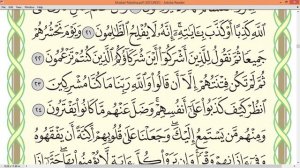 (SECURED) - Adobe Reader
ٱللَّهِ كَذِبًا أَوْ كَذَّبَ بِـَٔايَـٰتِهِۦٓ إِنَّهُۥ لَا يُفْلِحُ ٱلظَّـٰلِمُونَ ٢١ وَيَوْمَ نَحْشُرُهُمْ
جَمِيعًا ثُمَّ نَقُولُ لِلَّذِينَ أَشْرَكُوٓا۟ أَيْنَ شُرَكَآؤُكُمُ ٱلَّذِينَ كُنتُمْ تَزْعُمُونَ ٢٢
ثُمَّ لَمْ تَكُن فِتْنَتُهُمْ إِلَّآ أَن قَالُوا۟ وَٱللَّهِ رَبِّنَا مَا كُنَّا مُشْرِكِينَ ٢٣
ٱنظُرْ كَيْفَ كَذَبُوا۟ عَلَىٰٓ أَنفُسِهِمْ وَضَلَّ عَنْهُم مَّا كَانُوا۟ يَفْتَرُونَ ٢٤
وَمِنْهُم مَّن يَسْتَمِعُ إِلَيْكَ وَجَعَلْنَا عَلَىٰ قُلُوبِهِمْ أَكِنَّةً أَن يَفْقَهُوهُ